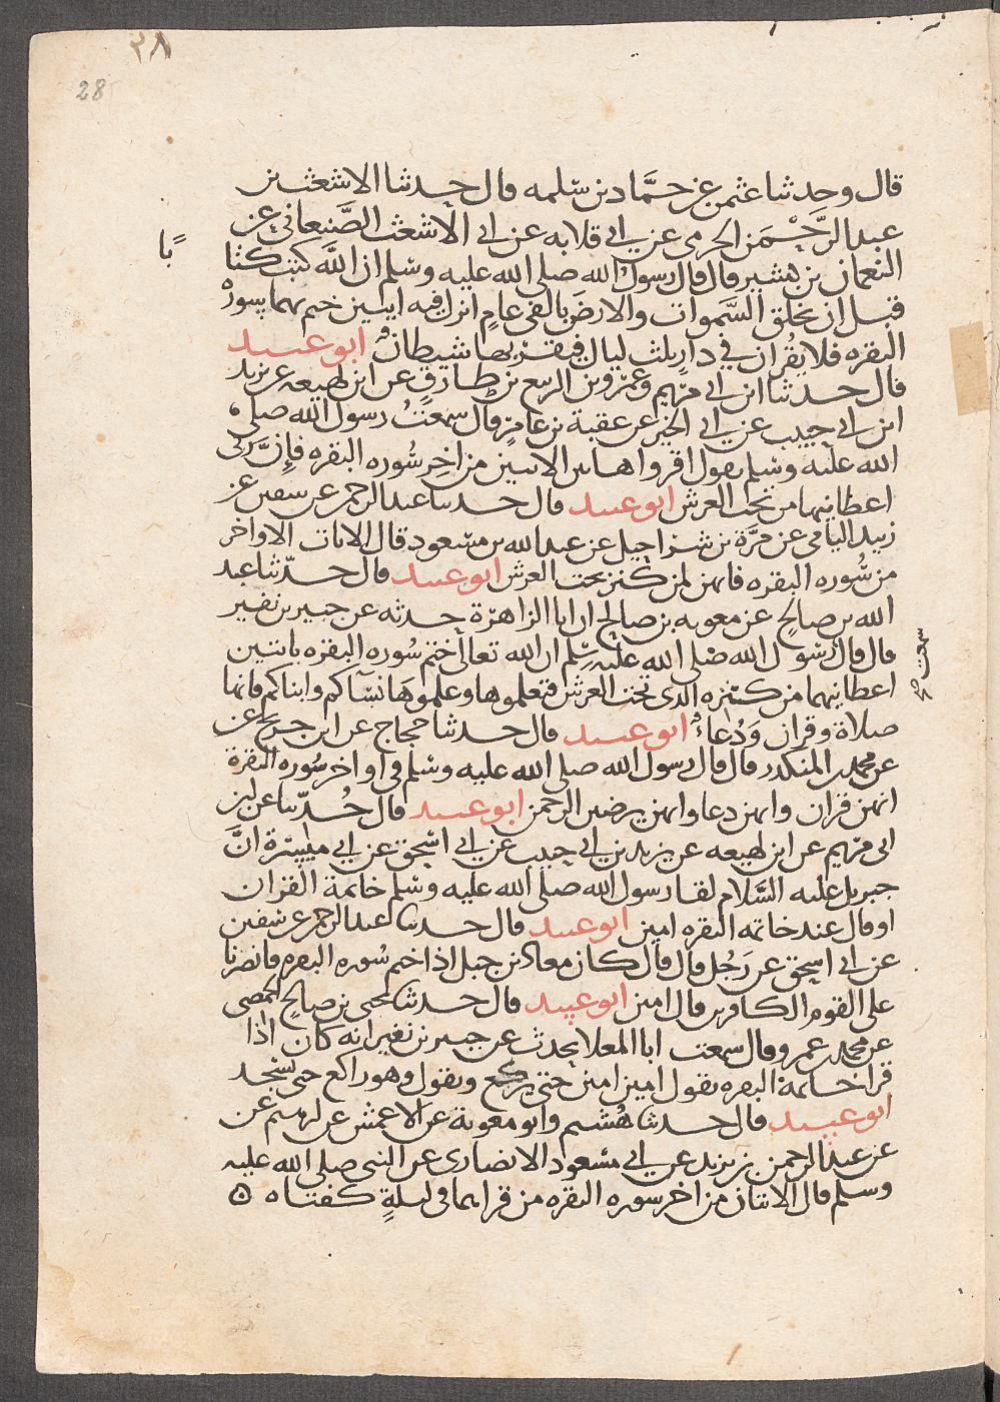 ٢٨
28
قال وحدثنا عثمن عن حماد بن سلمه قال حدثنا الاشعث بن
عبد الرحمن الجرمي عن ابي قلابه عن ابي الاشعث الصنعاني عن
النعمان بن بشير قال قال رسول الله صلى الله عليه وسلم ان الله كتب كتا
بًا
قبل ان يخلق السموات والارض بالفي عام انزل فيه ايتين ختم بهما سورة
البقره فلا يقران في دار ثلث ليال فيقربها شيطان ابو عبيد
قال حدثنا ابن ابي مريم وعمرو بن الربيع بن طارق عن ابن لهيعه عن يزيد
ابن ابي حبيب عن ابي الخير عن عقبة بن عامر قال سمعت رسول الله صلى
الله عليه وسلم يقول اقروا هاتين الايتين من اخر سوره البقره فإن ربي
اعطانيهما من تحت العرش ابو عبيد قال حدثنا عبد الرحمن عن سفين عن
زبيد اليامي عن مرة بن شراحيل عن عبد الله بن مسعود قال الايات الاواخر
من سوره البقره فانهن لمن كنز تحت العرش ابو عبيد قال حدثنا عبد
الله بن صالح عن معويه بن صالح ان ابا الزاهرية حدثه عن جبير بن نفير
قال قال رسول الله صلى الله عليه وسلم ان الله تعالى ختم سوره البقره بايتين
اعطانيهما من كنزه الذي تحت العرش فتعلموها وعلموها نسآكم وابناكم فانها
صلاة وقران ودعاء ابو عبيد قال حدثنا حجاج عن ابن جريج عن
عن محمد بن المنكدر قال قال رسول الله صلى الله عليه وسلم في اواخر سوره البقرة
انهن قران وانهن دعا وانهن يرضين الرحمن ابو عبيد قال حدثنا عن ابن
ابي مريم عن ابن لهيعه عن يزيد بن ابي حبيب عن ابي اسحق عن ابي ميسرة ان
جبريل عليه السلام لقا رسول الله صلى الله عليه وسلم خاتمة القران
او قال عند خاتمه البقره امين ابو عبيد قال حدثنا عبد الرحمن عن سفين
عن ابي اسحق عن رجل قال قال كان معاذ بن جبل اذا ختم سوره البقره فانصرنا
على القوم الكافرين قال امين ابو عبيد قال حدثنا يحيى بن صالح الحمصي
عن محمد بن عمر وقال سمعت ابا المعلا يحدث عن جبير بن نفير انه كان اذا
قرا خاتمة البقره يقول امين امين حتى يركع ويقول وهو راكع حتى يسجد
ابو عبيد قال حدثنا هشيم وابو معوية عن الاعمش عن ابرهيم عن
عن عبد الرحمن بن يزيد عن ابي مسعود الانصاري عن النبي صلى الله عليه
وسلم قال الايتان من اخر سوره البقره من قراهما في ليلة كفتاه